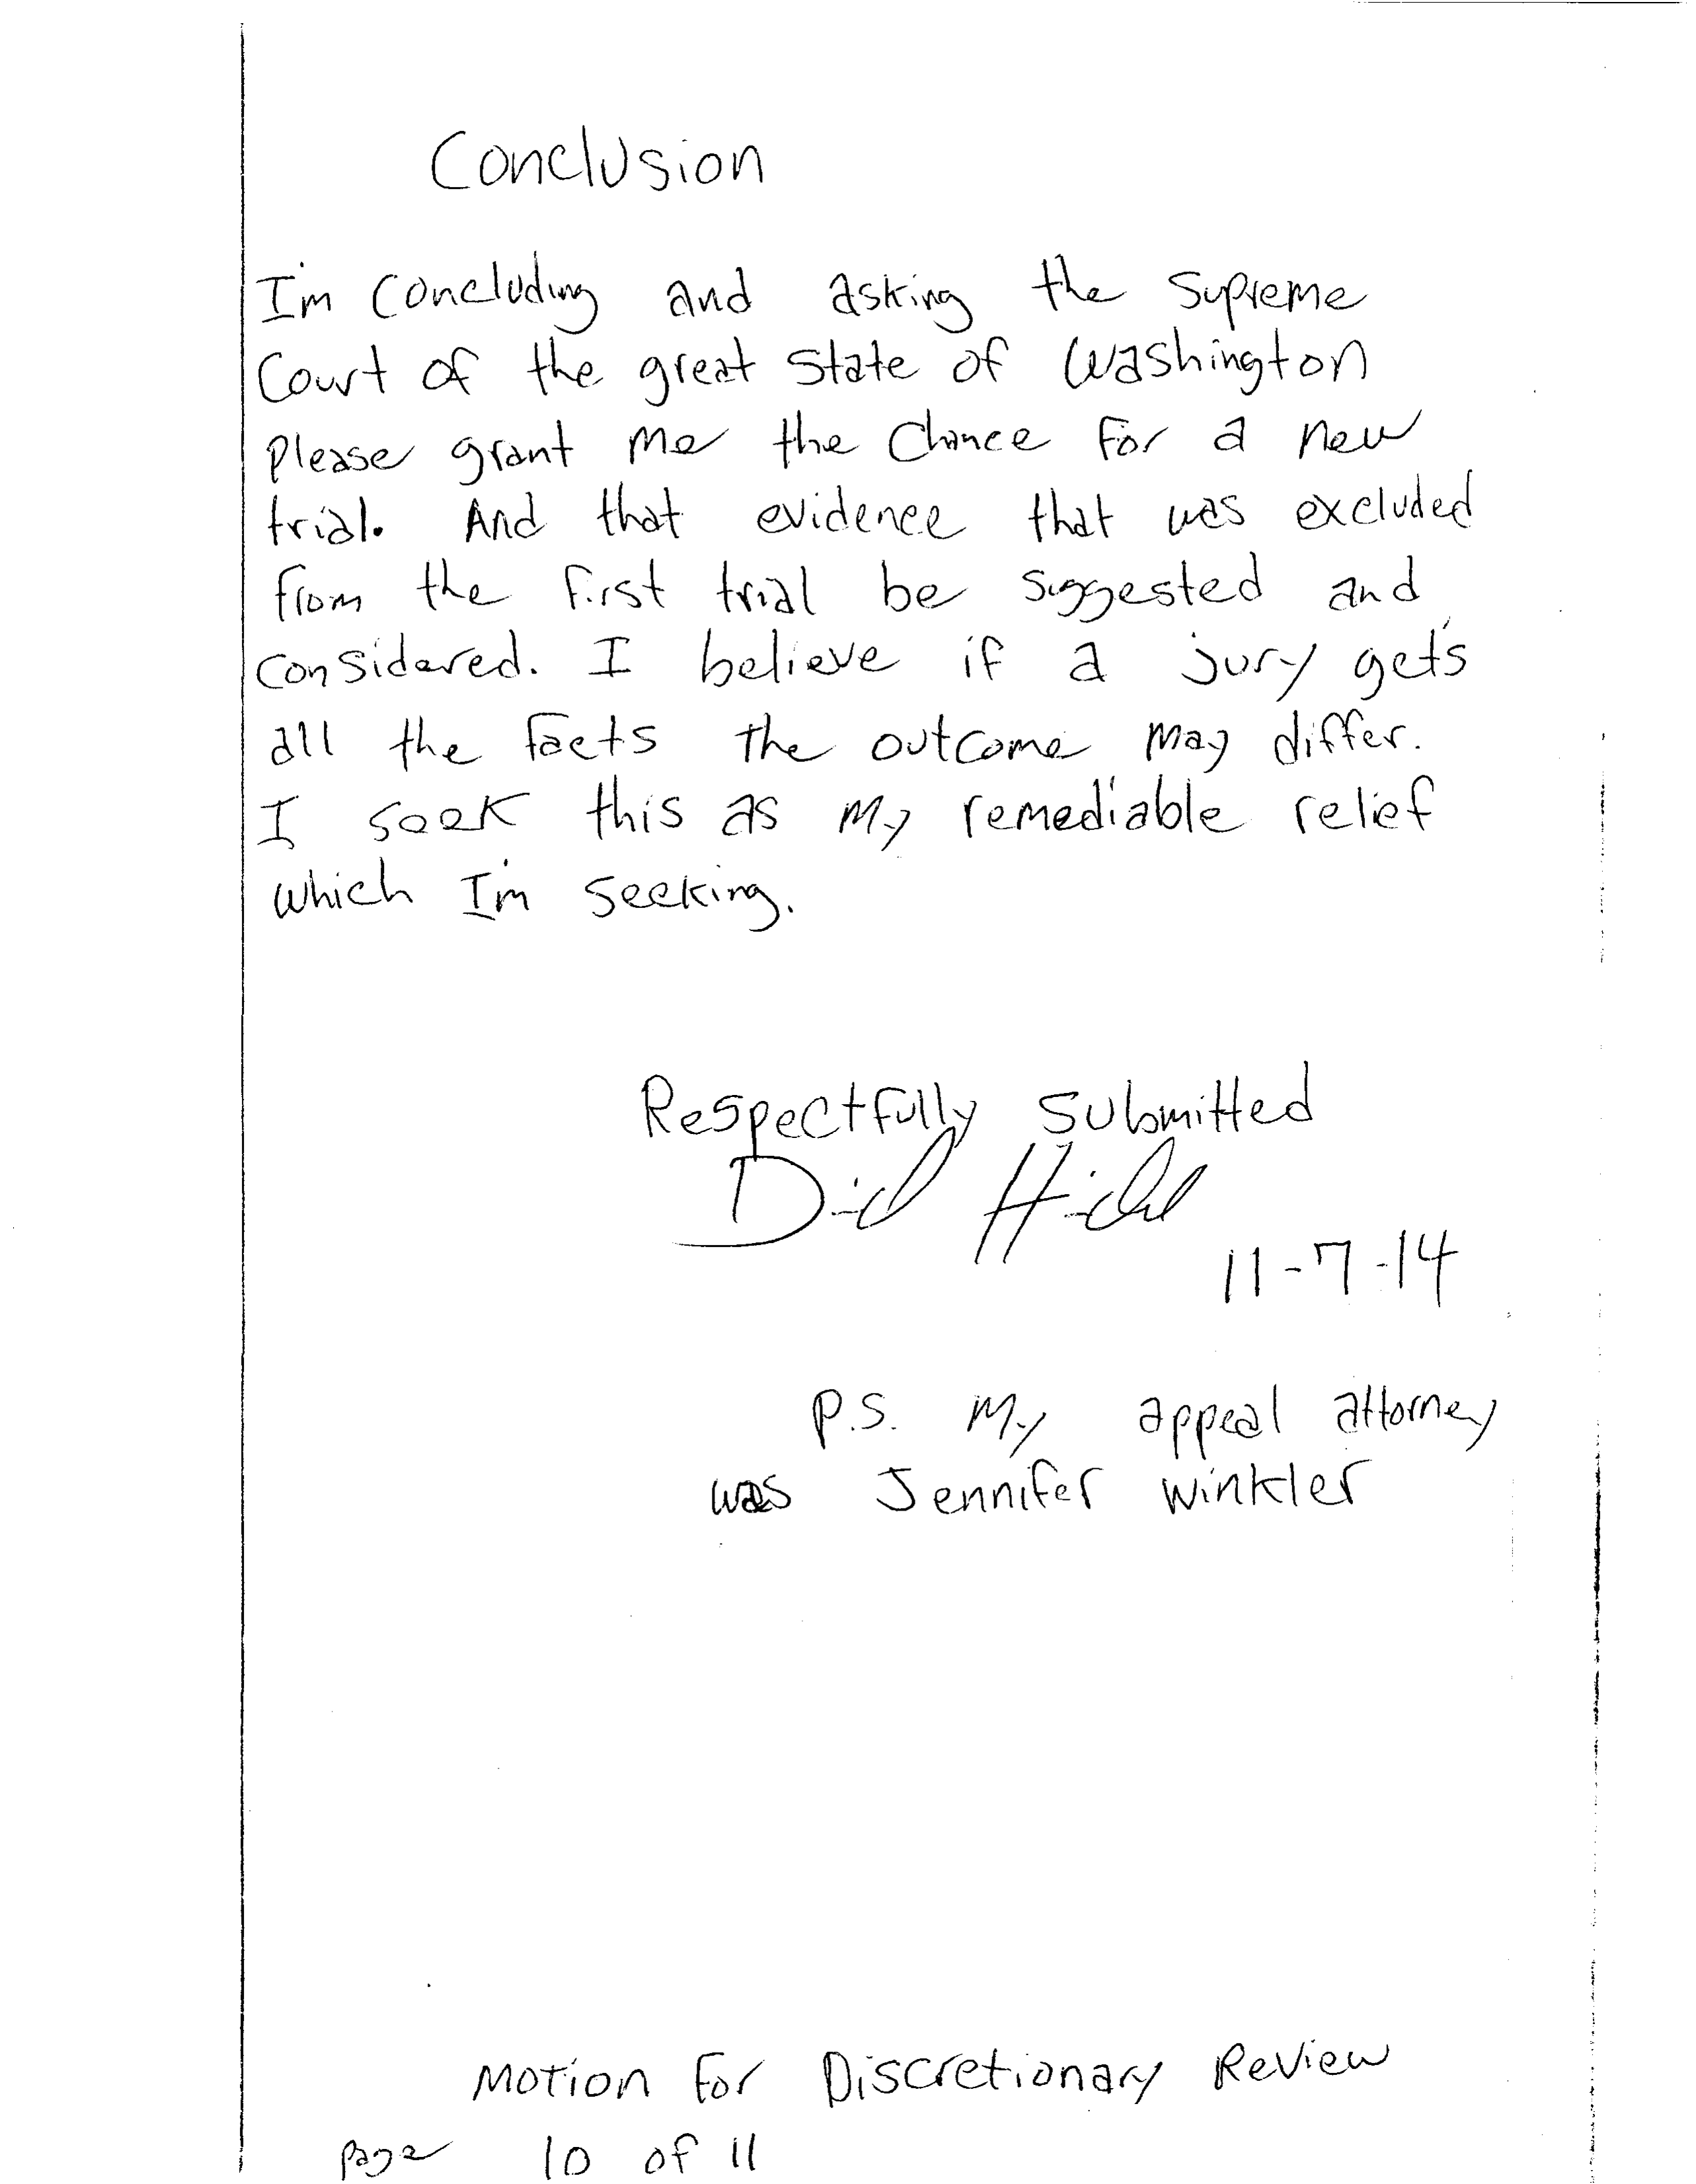 Conclusion
I'm concluding and asking the Supreme
Court of the great State of Washington
please grant me the chance for a new
trial. And that evidence that was excluded
from the first trial be suggested and
considered. I believe if a jury gets
all the facts the outcome may differ.
I seek this as my remediable relief
which I'm seeking.
Respectfully Submitted
11-7-14
P.S. My appeal attorney
was Jennifer Winkler
Motion For Discretionary Review
page 10 of 11